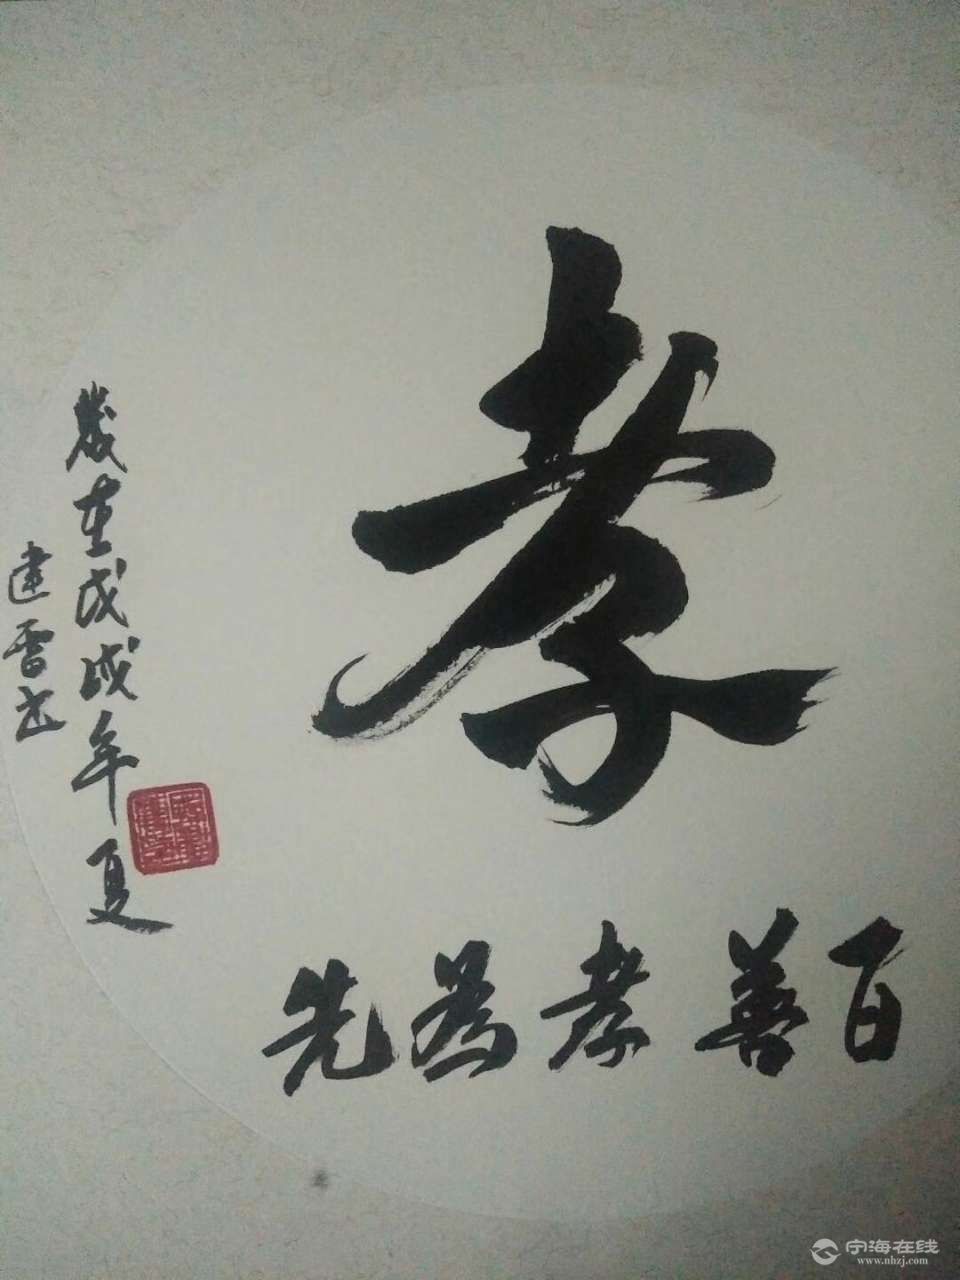 孝
百善孝為先
歲在戊戌年夏
建雷书
宁海在线
www.nhzj.com